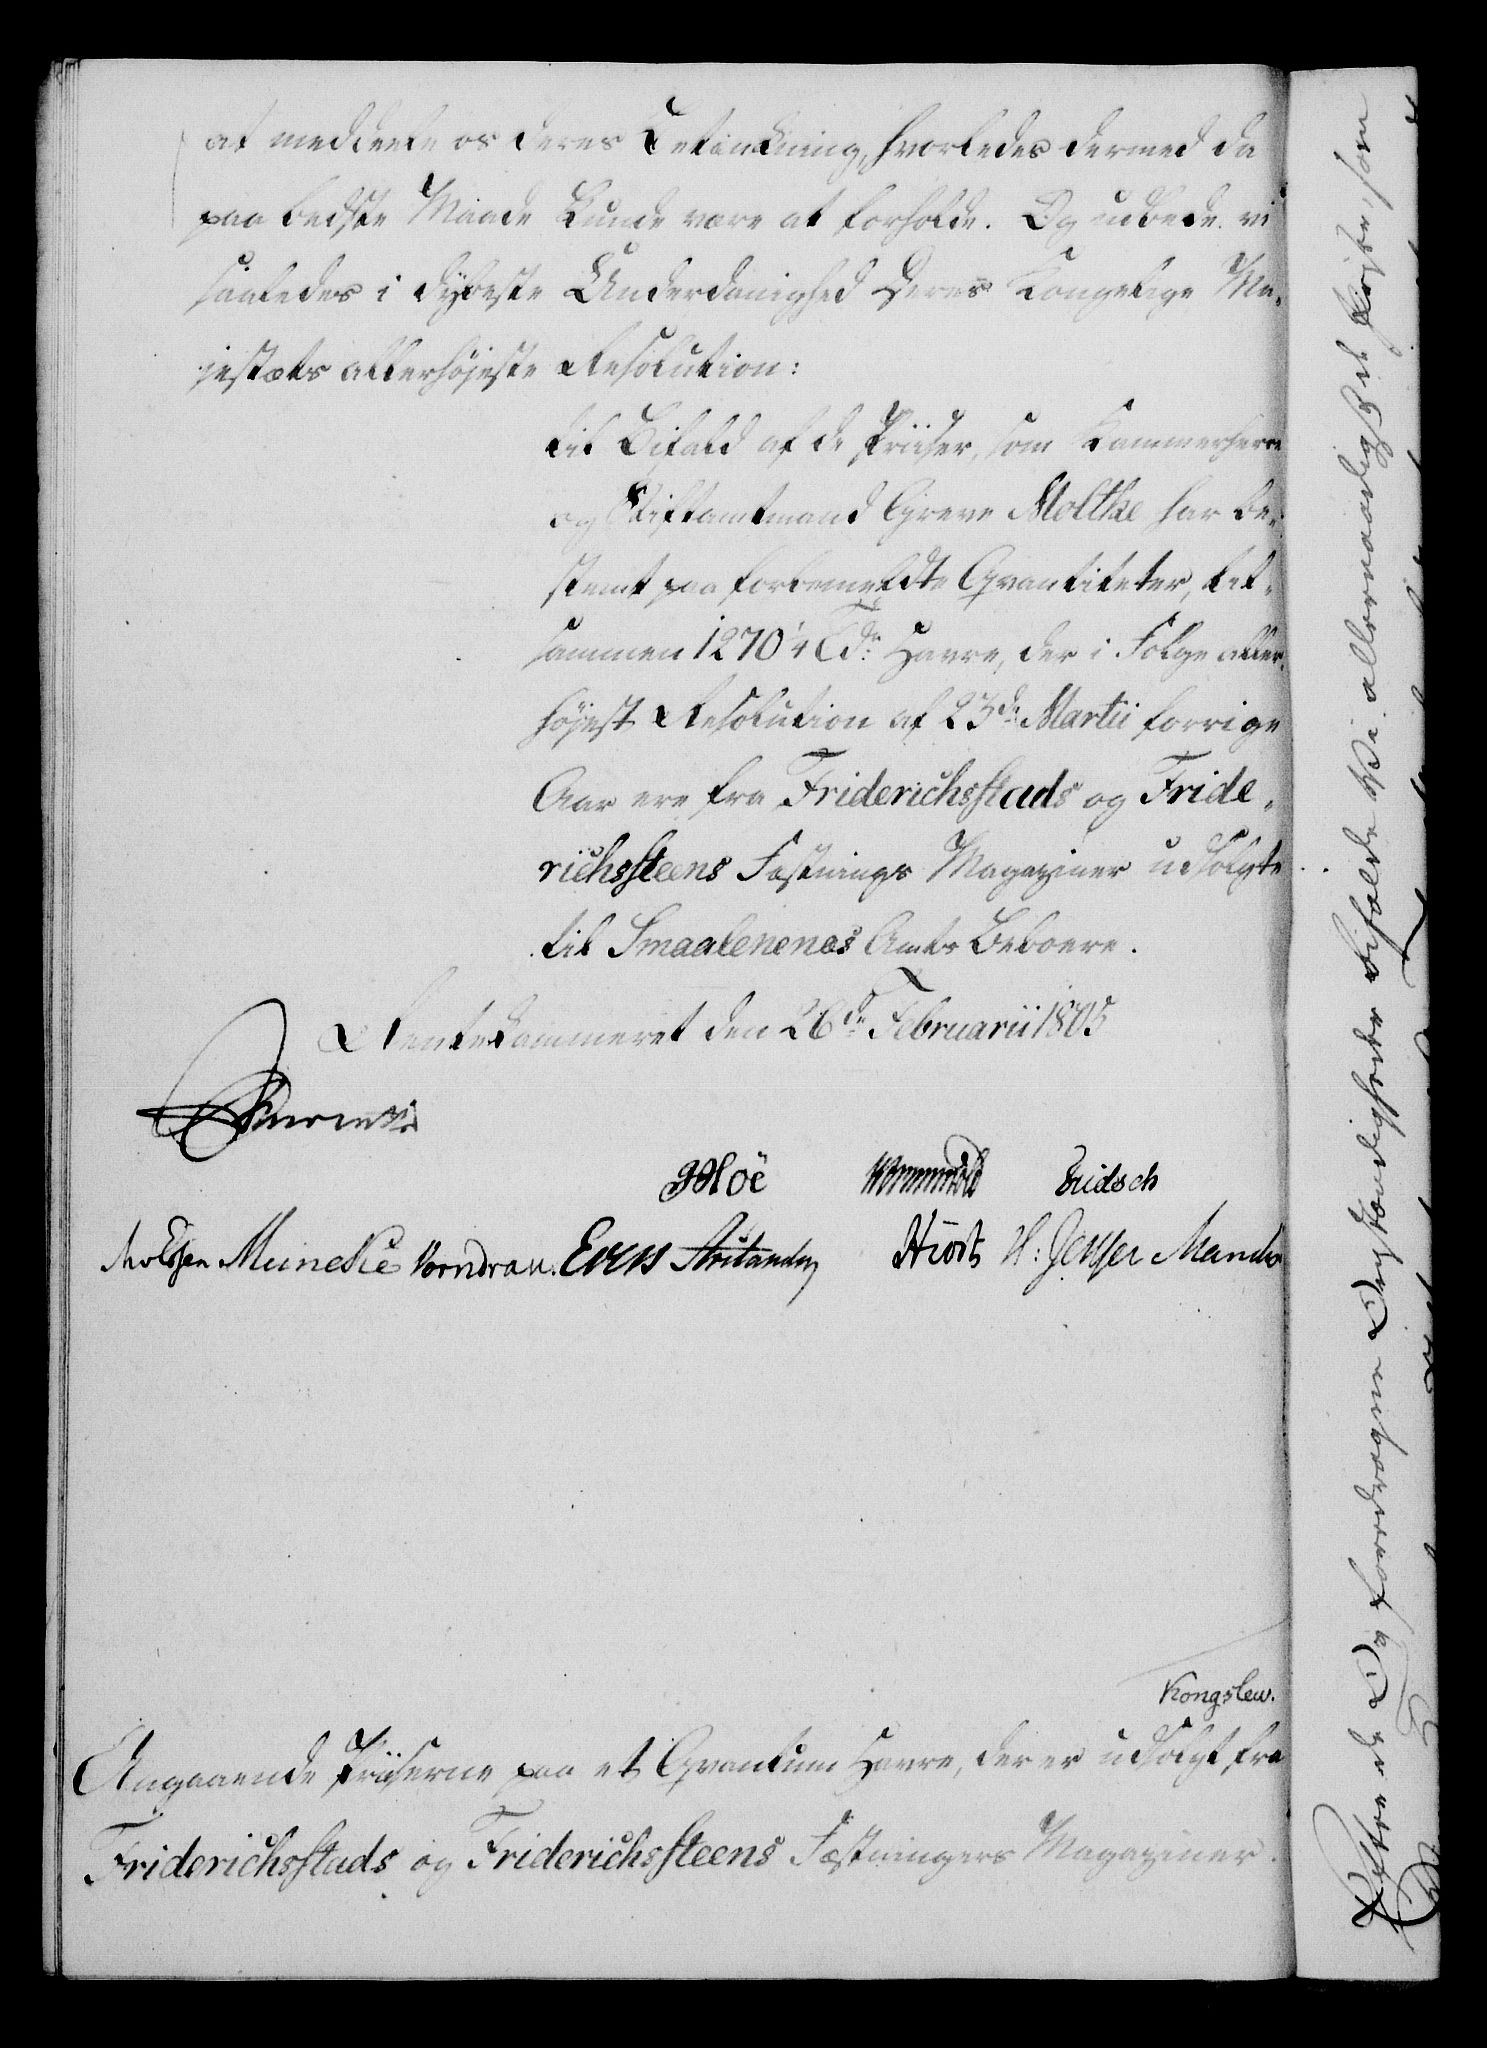 at meddeele os deres Betænkning, hvorledes dermed da
paa bedste Maade kunde være at forholde. Og udbede vi
saaledes i dybeste Underdanighed Deres Kongelige Ma-
jestæts allerhøjeste Resolution:
til Bifald af de Priiser, som Kammerherre
og Stiftamtmand Greve Moltke har be-
stemt paa forbemeldte Qvantiteter, til-
sammen 1270 1/4 Tdr Havre, der i Følge aller-
højest Resolution af 23de Martii forrige
Aar ere fra Friderichsstads og Fride-
richssteens Fæstnings Magaziner udsolgte
til Smaalenenes Amts Beboere.
Rentekammeret den 26de Februarii 1805
Reventlow
Wormskiold
Meinecke Vorndran. Evers Hiorth H: Jensen
Kongslew.
Angaaende Priiserne paa et Qvantum Havre, der er udsolgt fra
Friderichsstads og Friderichssteens Fæstningers Magaziner.
Oven andragne Omstændigheder bifalde Vi allernaadigst de Priiser, som